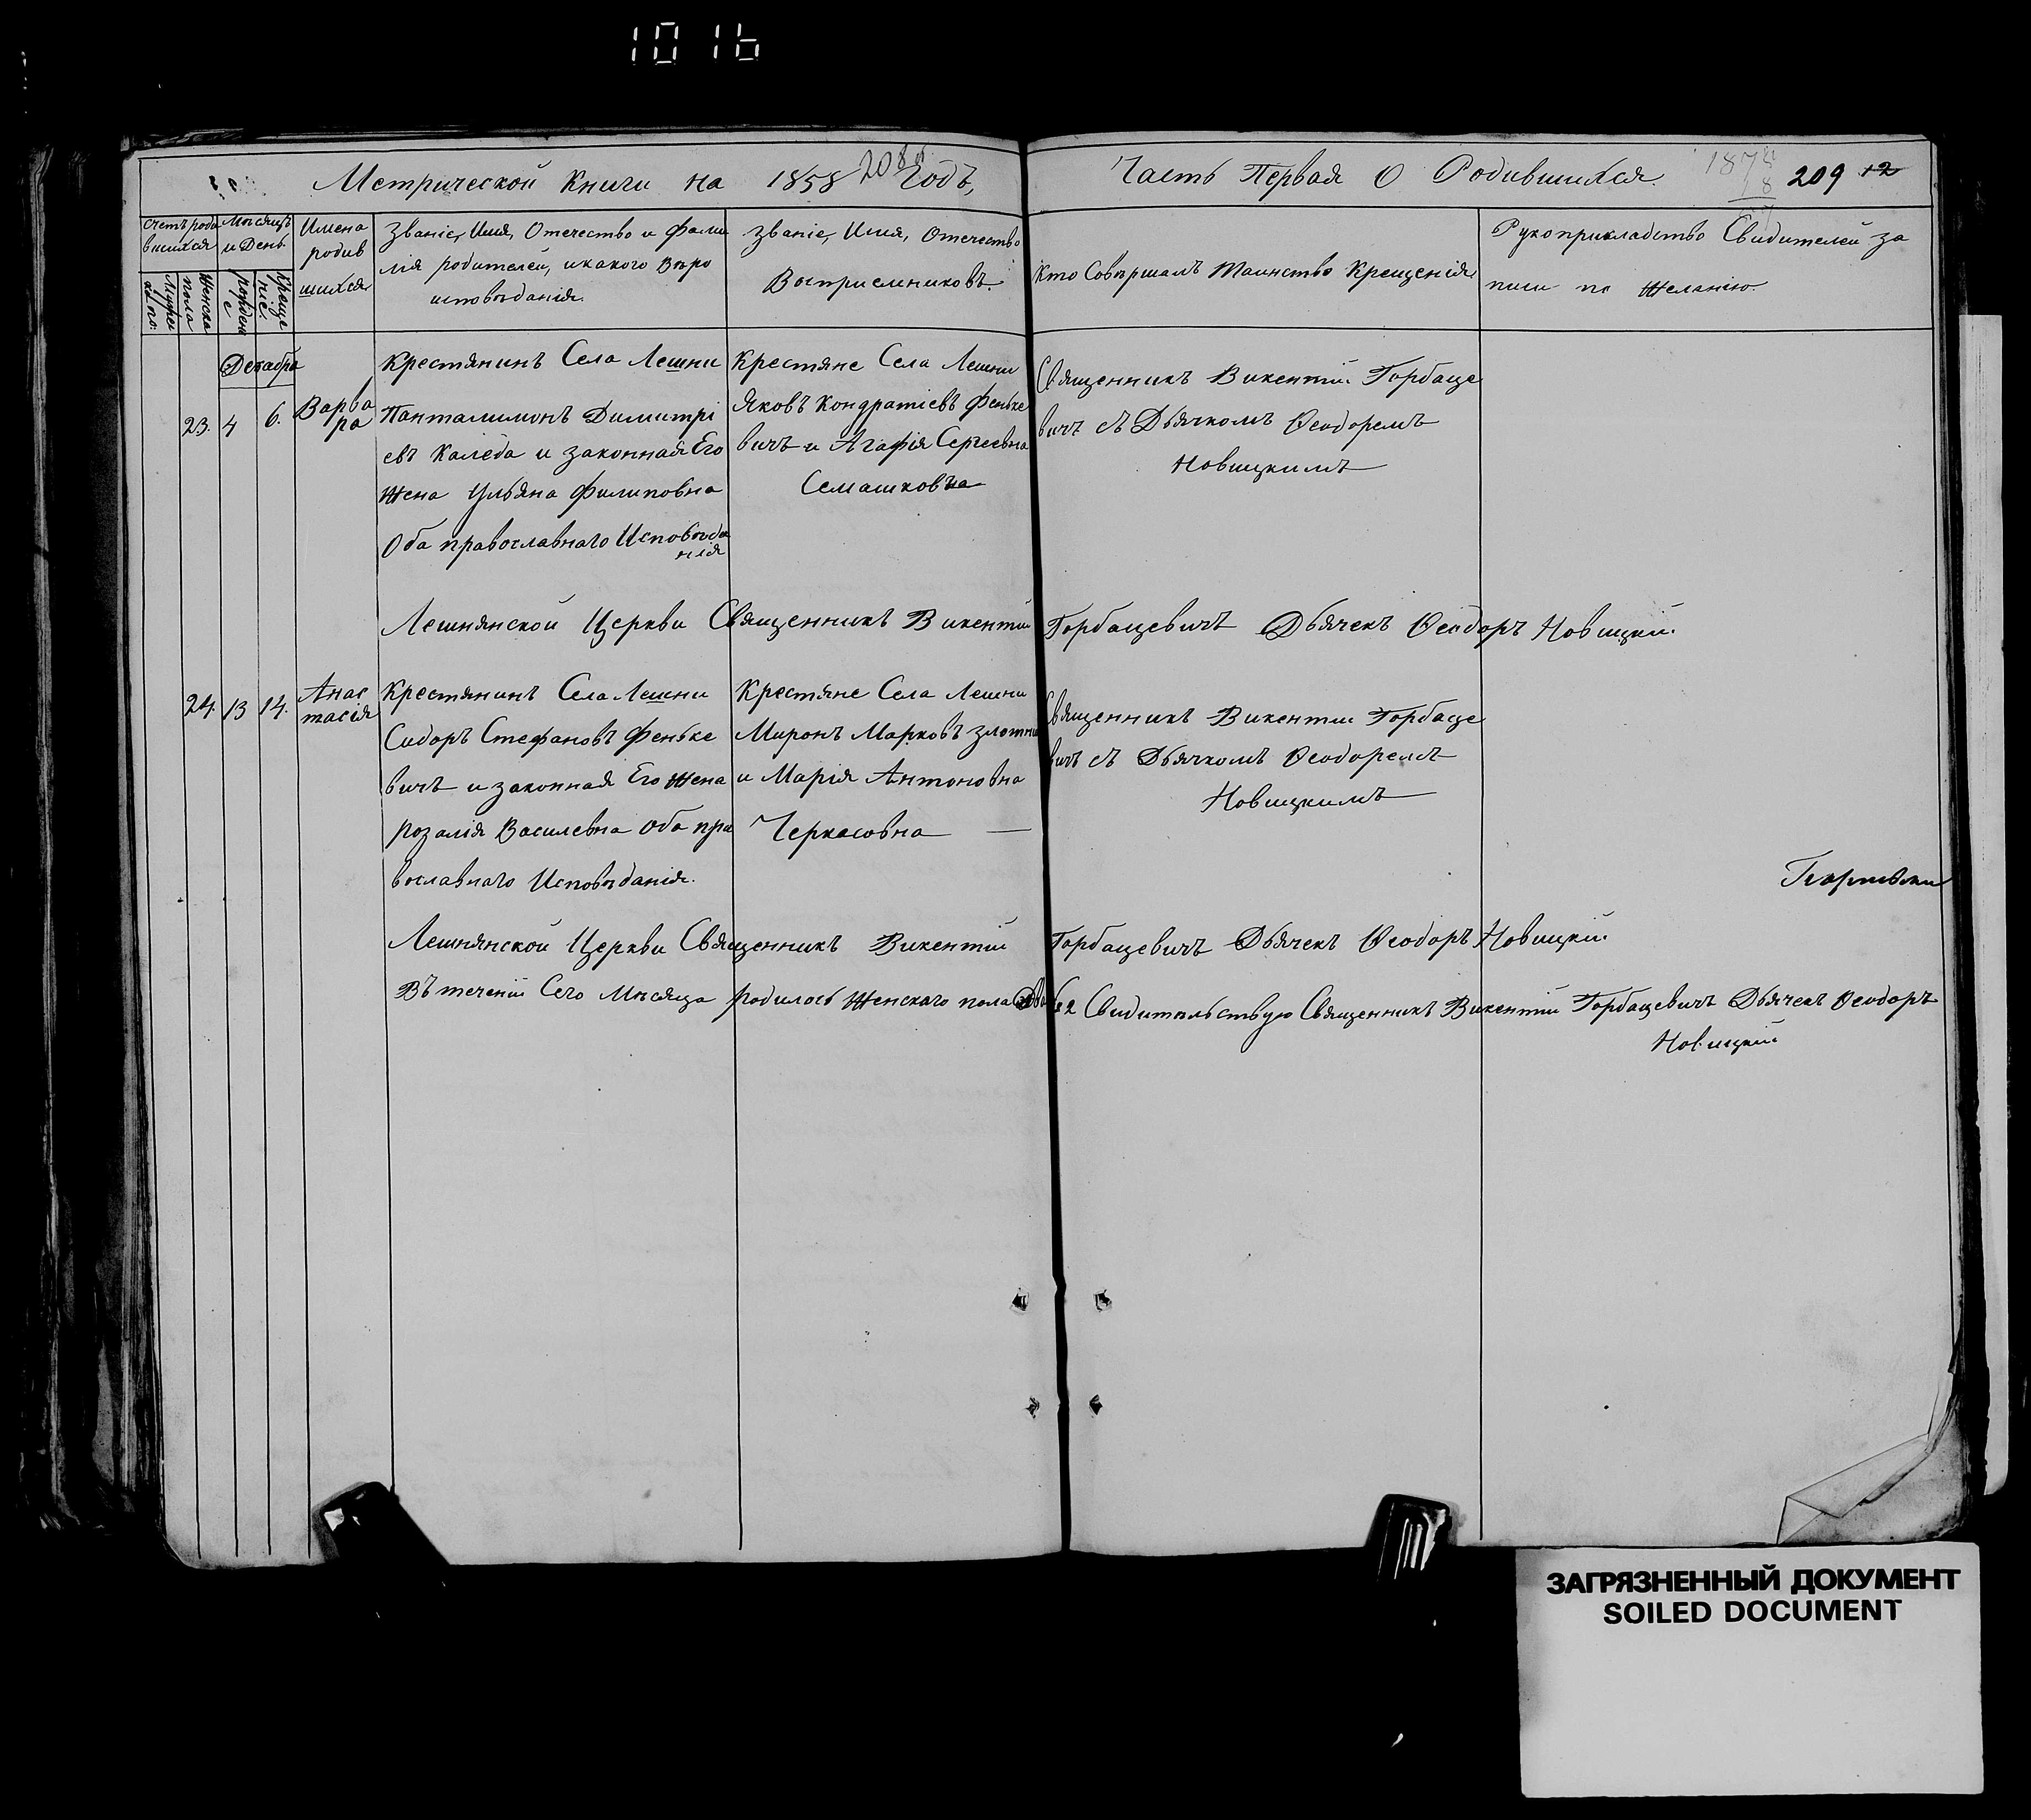 1016
Метрической Книги на 1858 Годъ,
208 об
Часть Первая О Родившихся.
209 12
Счетъ роди
вшихся
Мѣсяцъ
и День
Имена
родив
шихся
Званіе, Имя, Отечество и фами
лія родителей, и какого Вѣро
исповѣданія.
Званіе, Имя, Отечество
Воспріемниковъ.
Кто Совершалъ Таинство Крещенія
Рукоприкладство Свидителей за
писи по Желанію.
Женска
пола
Декабра
23. 4 6.
Варва
ра
Крестянинъ Села Лешни
Панталимонъ Димитрі
евъ Каледа и законная Его
Жена Ульяна Филиповна
Оба православнаго Исповѣда
нія
Крестяне Села Лешни
Яковъ Кондратіевъ Фенке
вичъ и Агафія Сергеевна
Семашковна
Священникъ Викентій Горбаце
вичъ съ Дьячкомъ Ѳеодоремъ
Новицкимъ
Лешнянской Церкви Священникъ Викентій Горбацевичъ Дьячекъ Ѳеодоръ Новицкій.
24. 13 14.
Анас
тасія
Крестянинъ Села Лешни
Сидоръ Стефановъ Фенке
вичъ и законная Его Жена
Розалія Василевна Оба пра
вославнаго Исповѣданія.
Крестяне Села Лешни
Миронъ Марковъ Злотни
и Марія Антоновна
Черкасовна
Священникъ Викентій Горбаце
вичъ съ Дьячкомъ Ѳеодоремъ
Новицкимъ
Лешнянской Церкви Священникъ Викентій Горбацевичъ Дьячекъ Ѳеодоръ Новицкій
Въ теченіи Сего Мѣсяца родилось Женскаго пола Двѣ 2 Свидительствую Священникъ Викентій Горбацевичъ Дьячекъ Ѳеодоръ
Новицкій
ЗАГРЯЗНЕННЫЙ ДОКУМЕНТ
SOILED DOCUMENT